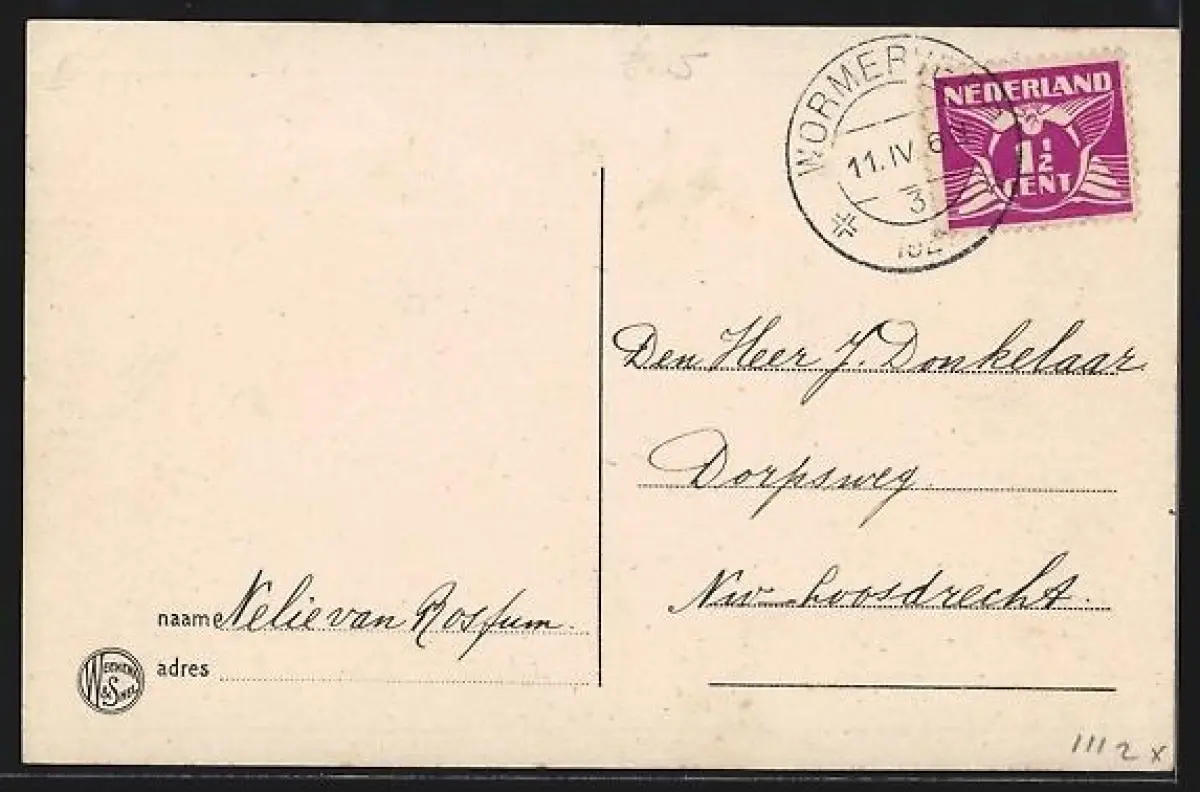 5
WORMERV
11.IV 6
3
NEDERLAND
1½
CENT
Den Heer J. Donkelaar
Dorpsweg.
Nw. Loosdrecht.
naam Nelie van Rossum.
adres
1112x